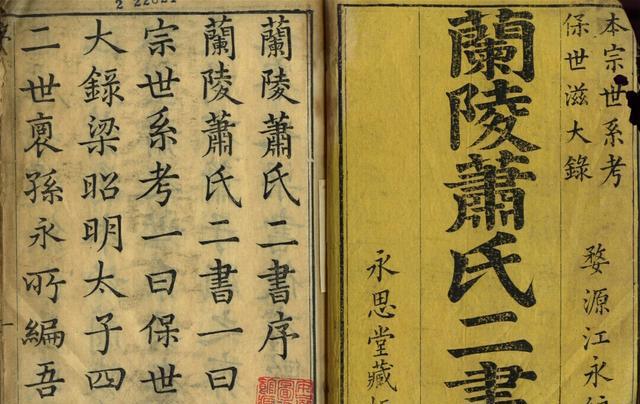 本宗世系考
保世滋大錄
婺源江永
蘭陵蕭氏二書
永思堂藏
蘭陵蕭氏二書序
蘭陵蕭氏二書一曰
宗世系考一曰保世
大錄梁昭明太子四
二世裔孫永所編吾